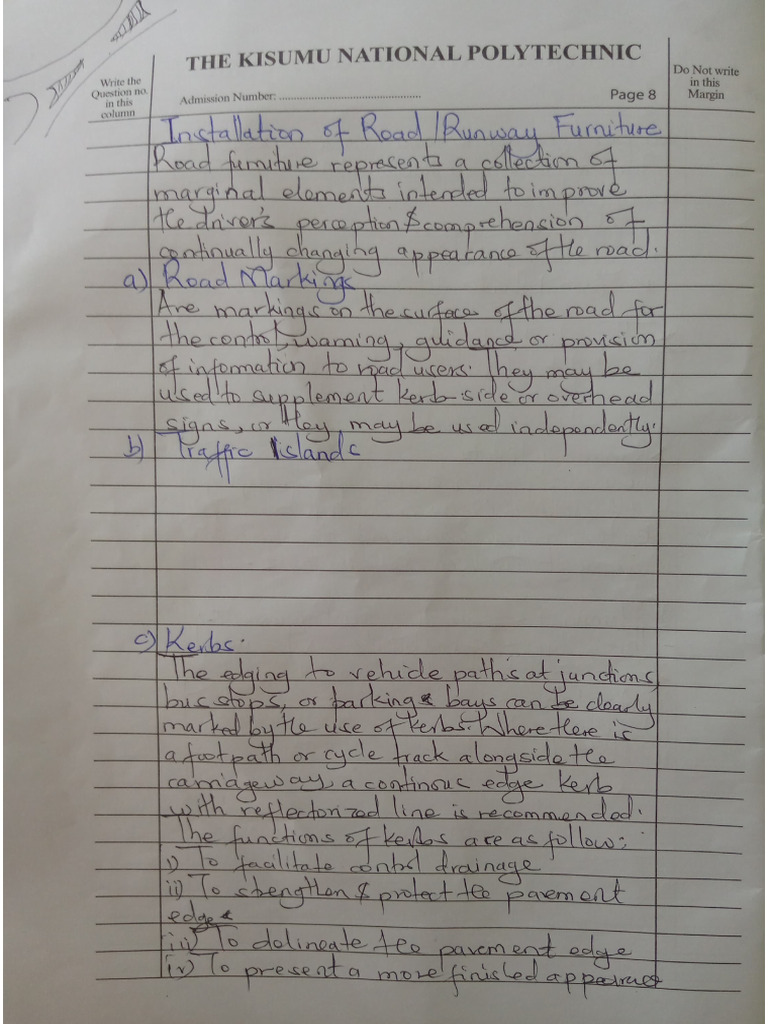 THE KISUMU NATIONAL POLYTECHNIC
Write the
Question no.
in this
column
Admission Number: ................................................
Page 8
Do Not write
in this
Margin
Installation of Road /Runway Furniture
Road furniture represents a collection of
marginal elements intended to improve
the driver's perception & comprehension of
continually changing appearance of the road.
a) Road Markings
Are markings on the surface of the road for
the control, warning, guidance or provision
of information to road users. They may be
used to supplement kerb-side or overhead
signs, or they may be used independently.
b) Traffic Islands
c) Kerbs.
The edging to vehicle paths at junctions,
bus stops, or parking bays can be clearly
marked by the use of kerbs. Where there is
a foot path or cycle track alongside the
carriageway, a continous edge kerb
with reflectorized line is recommended.
The functions of kerbs are as follow:
i) To facilitate control drainage
ii) To strengthen & protect the pavement
edge
iii) To delineate the pavement edge
iv) To present a more finished appearance